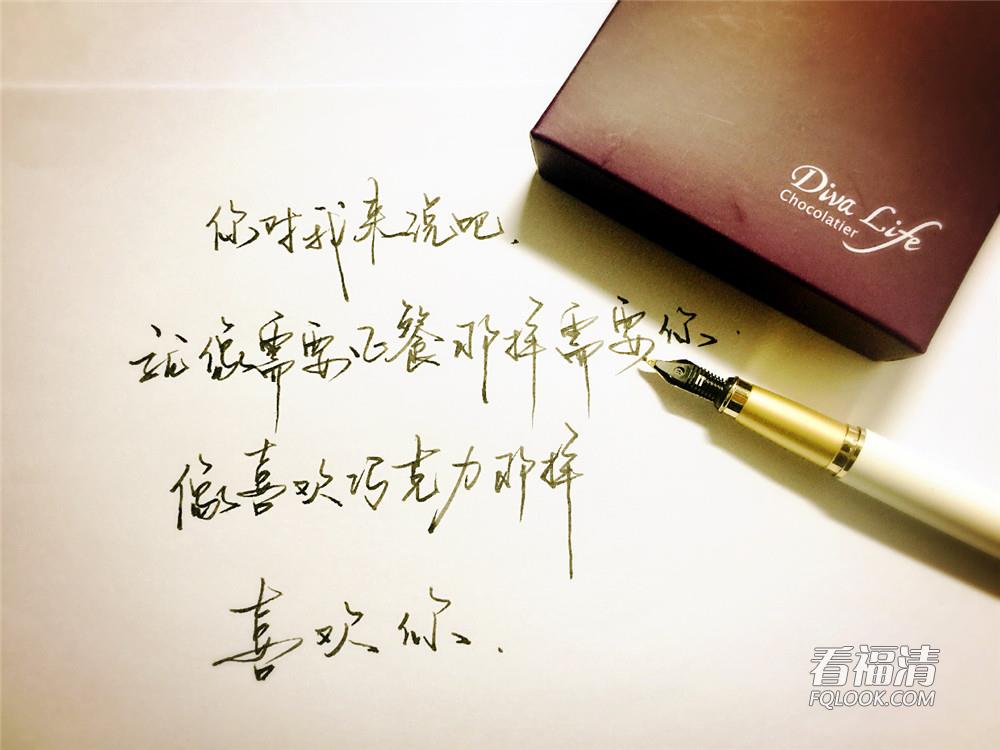 你对我来说吧.
就像需要正餐那样需要你.
像喜欢巧克力那样
喜欢你.
Diva Life
Chocolatier
看福清
FQLOOK.COM